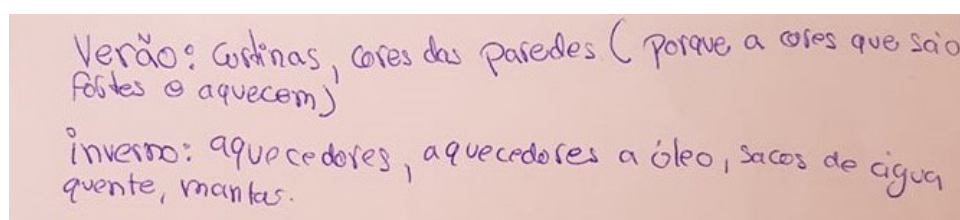 Verão: Cortinas, cores das paredes ( porque a cores que são
fortes e aquecem)
inverno: aquecedores, aquecedores a óleo, sacos de água
quente, mantas.